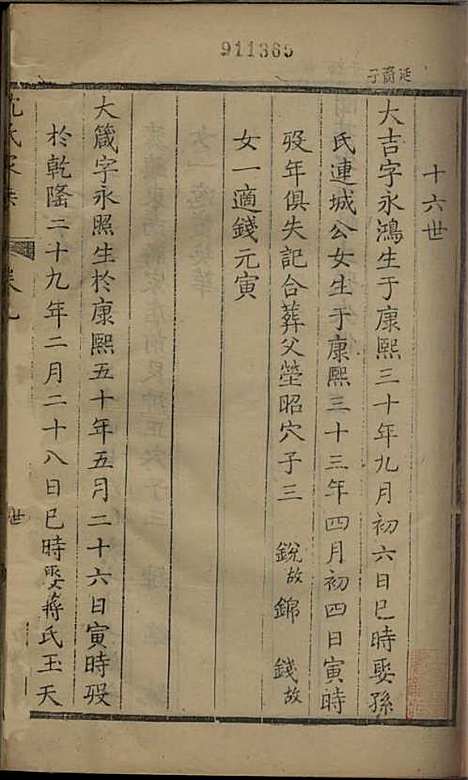 911365
延爵子
十六世
大吉字永鴻生于康熙三十年九月初六日巳時娶孫
氏連城公女生于康熙三十三年四月初四日寅時
歿年俱失記合葬父塋昭穴子三 銳故 錦 錢故
女一適錢元寅
大箴字永照生於康熙五十年五月二十六日寅時歿
於乾隆二十九年二月二十八日巳時娶蔣氏玉天
氏家
世